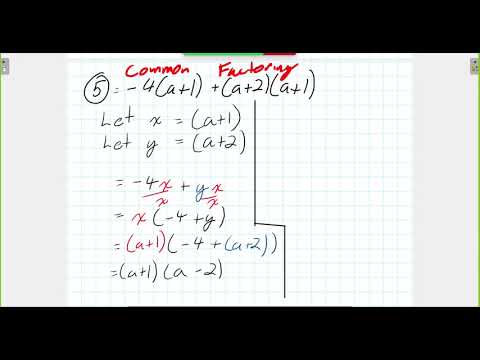 Common Factoring
⑤ = -4(a+1) + (a+2)(a+1)
Let x = (a+1)
Let y = (a+2)
= -4x/x + yx/x
= x(-4+y)
= (a+1)(-4+(a+2))
= (a+1)(a-2)